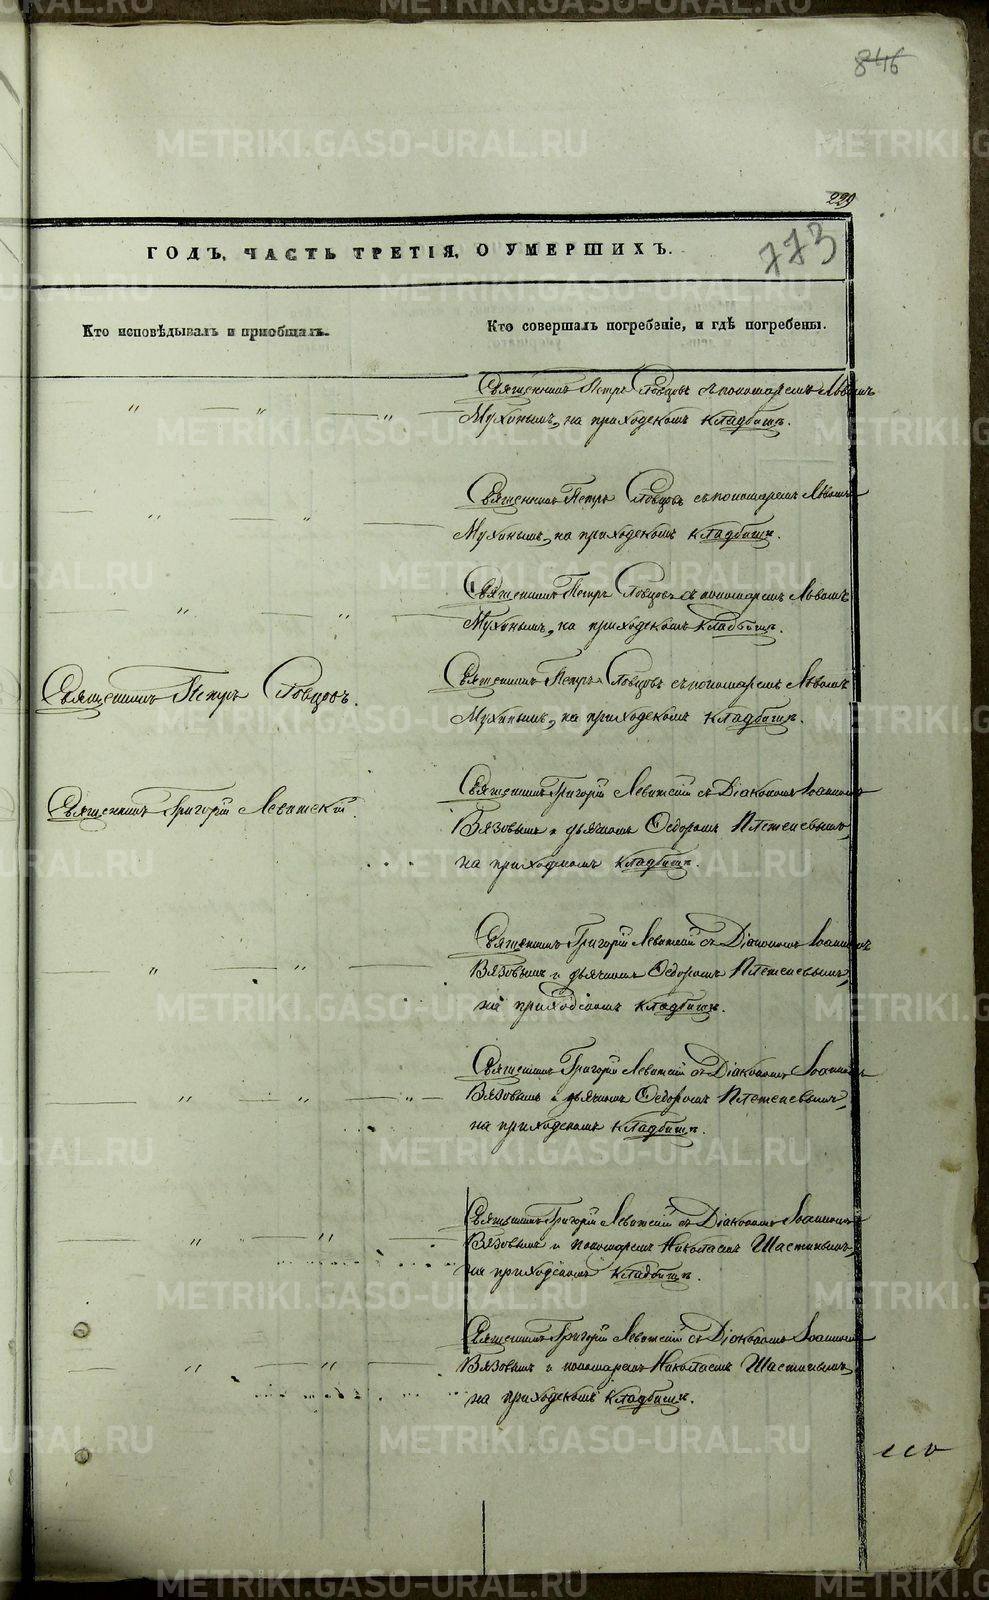 846
229
ГОДЪ, ЧАСТЬ ТРЕТІЯ, О УМЕРШИХЪ.
773
Кто исповѣдывалъ и пріобщалъ.
Кто совершалъ погребеніе, и гдѣ погребены.
Священникъ Петръ Словцовъ съ пономаремъ Львомъ
Мухинымъ, на приходскомъ кладбищѣ.
Священникъ Петръ Словцовъ съ пономаремъ Львомъ
Мухинымъ, на приходскомъ кладбищѣ.
Священникъ Петръ Словцовъ съ пономаремъ Львомъ
Мухинымъ, на приходскомъ кладбищѣ.
Священникъ Петръ Словцовъ.
Священникъ Петръ Словцовъ съ пономаремъ Львомъ
Мухинымъ, на приходскомъ кладбищѣ.
Священникъ Григорій Левитскій.
Священникъ Григорій Левитскій съ Діакономъ Іоанномъ
Вязовымъ и дьячкомъ Ѳедоромъ Плетеневымъ,
на приходскомъ кладбищѣ.
Священникъ Григорій Левитскій съ Діакономъ Іоанномъ
Вязовымъ и дьячкомъ Ѳедоромъ Плетеневымъ,
на приходскомъ кладбищѣ.
Священникъ Григорій Левитскій съ Діакономъ Іоанномъ
Вязовымъ и дьячкомъ Ѳедоромъ Плетеневымъ,
на приходскомъ кладбищѣ.
Священникъ Григорій Левитскій съ Діакономъ Іоанномъ
Вязовымъ и пономаремъ Николаемъ Шастинымъ,
на приходскомъ кладбищѣ.
Священникъ Григорій Левитскій съ Діакономъ Іоанномъ
Вязовымъ и пономаремъ Николаемъ Шастинымъ,
на приходскомъ кладбищѣ.
METRIKI.GASO-URAL.RU